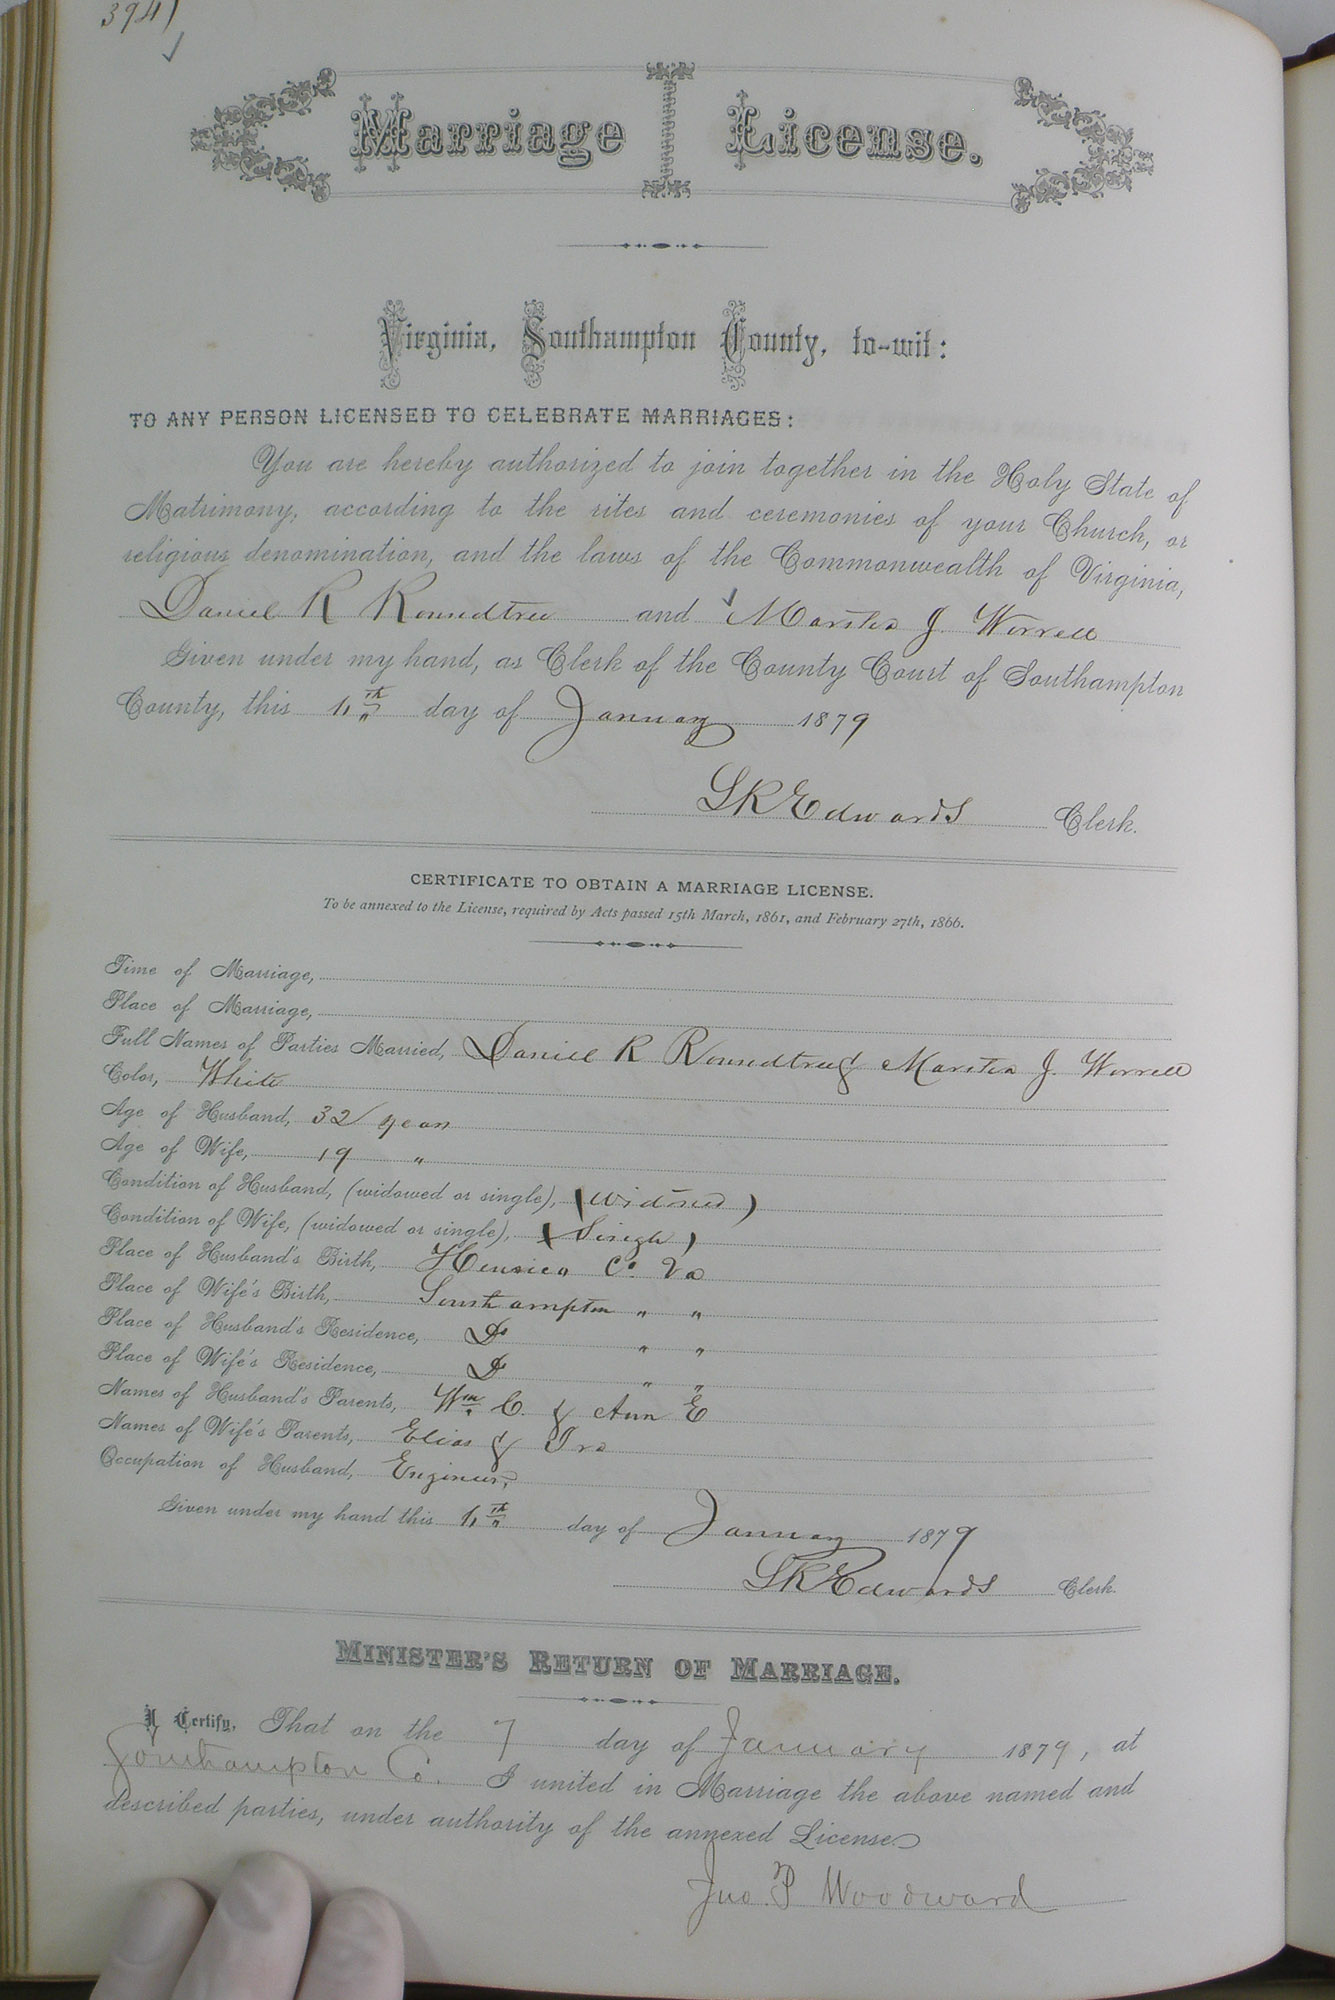 394)
Marriage License.
Virginia, Southampton County, to-wit:
TO ANY PERSON LICENSED TO CELEBRATE MARRIAGES:
You are hereby authorized to join together in the Holy State of
Matrimony, according to the rites and ceremonies of your Church, or
religious denomination, and the laws of the Commonwealth of Virginia,
Daniel R Roundtree and J. Worrell
Given under my hand, as Clerk of the County Court of Southampton
County, this day of January 1879
L R Edwards Clerk.
CERTIFICATE TO OBTAIN A MARRIAGE LICENSE.
To be annexed to the License, required by Acts passed 15th March, 1861, and February 27th, 1866.
Time of Marriage,
Place of Marriage,
Full Names of Parties Married, Daniel R Roundtree & J. Worrell
Color, White
Age of Husband, 32 years
Age of Wife, 19 "
Condition of Husband, (widowed or single), (widowed)
Condition of Wife, (widowed or single), (Single)
Place of Husband's Birth, Henrico Co Va
Place of Wife's Birth, Southampton " "
Place of Husband's Residence, Do " "
Place of Wife's Residence, Do " "
Names of Husband's Parents, Wm C. & Ann E
Names of Wife's Parents, Elias &
Occupation of Husband, Engineer,
Given under my hand this day of January 1879
L R Edwards Clerk.
MINISTER'S RETURN OF MARRIAGE.
I Certify, That on the 7 day of January 1879, at
Southampton Co. I united in Marriage the above named and
described parties, under authority of the annexed License
Jno. P Woodward